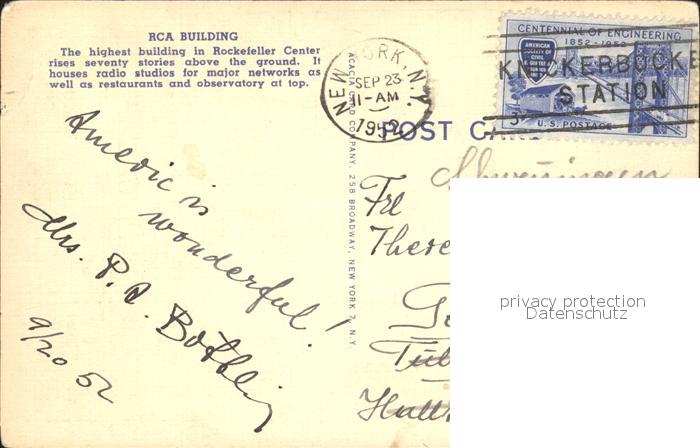 RCA BUILDING
The highest building in Rockefeller Center
rises seventy stories above the ground. It
houses radio studios for major networks as
well as restaurants and observatory at top.
Americ is
wonderful!
Mrs. P. A. Bothling
9/20 52
ACACIA CARD COMPANY, 258 BROADWAY, NEW YORK 7, N.Y.
NEW YORK, N.Y.
SEP 23
11-AM
1952
CENTENNIAL OF ENGINEERING
1852-1952
AMERICAN
SOCIETY OF
CIVIL
ENGINEERS
3¢
U.S. POSTAGE
KNICKERBOCKE
STATION
POST CAR
Schwenningen
Frl
There
Tüb
privacy protection
Datenschutz